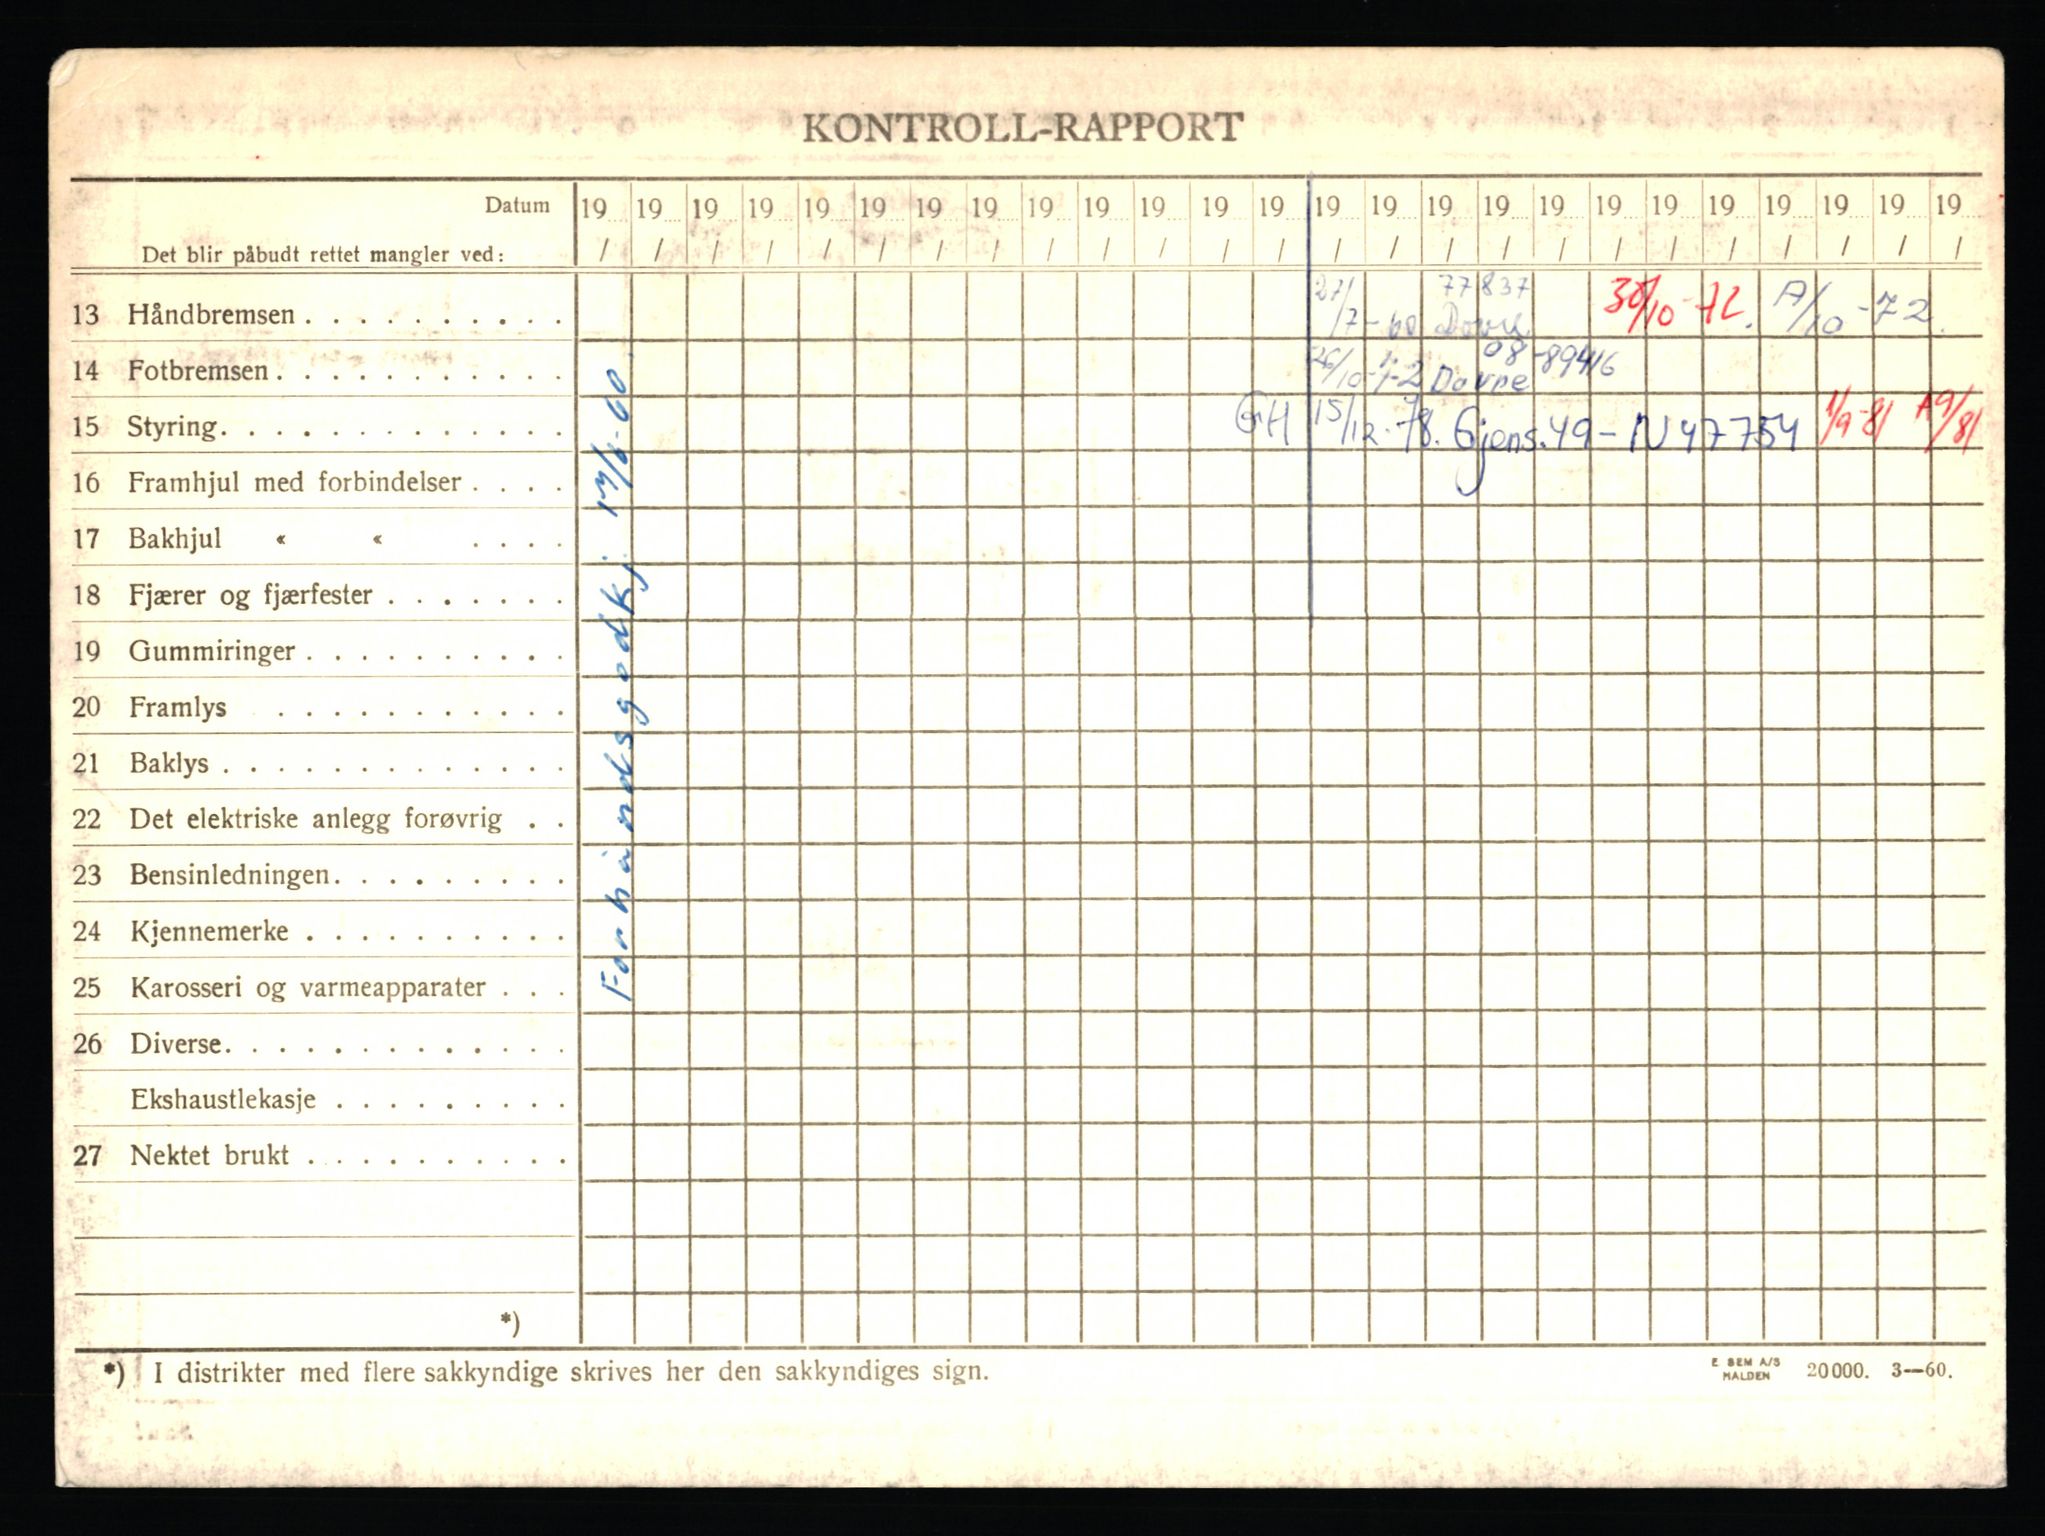 KONTROLL-RAPPORT
Datum 19 19 19 19 19 19 19 19 19 19 19 19 19 19 19 19 19 19 19 19 19 19 19 19 19
Det blir påbudt rettet mangler ved: / / / / / / / / / / / / / / / / / / / / / / / / /
27/7-60 77837
30/10-72. A/10-72.
13 Håndbremsen . . . . . . . . . .
26/10-72 Dovre 08-89416
14 Fotbremsen . . . . . . . . . . .
15 Styring. . . . . . . . . . . . . GH 15/12.78. Gjens.49-N47754 1/9-81 A9/81
16 Framhjul med forbindelser . . . .
17 Bakhjul « « . . . .
18 Fjærer og fjærfester . . . . . . .
19 Gummiringer . . . . . . . . . .
20 Framlys . . . . . . . . . . .
21 Baklys . . . . . . . . . . . . .
22 Det elektriske anlegg forøvrig . .
23 Bensinledningen. . . . . . . . .
24 Kjennemerke . . . . . . . . . .
25 Karosseri og varmeapparater . . .
26 Diverse. . . . . . . . . . . . .
Ekshaustlekasje . . . . . . . . .
27 Nektet brukt . . . . . . . . . .
Forhåndsgodkj.
*)
*) I distrikter med flere sakkyndige skrives her den sakkyndiges sign.
E SEM A/S
HALDEN
20000. 3—60.